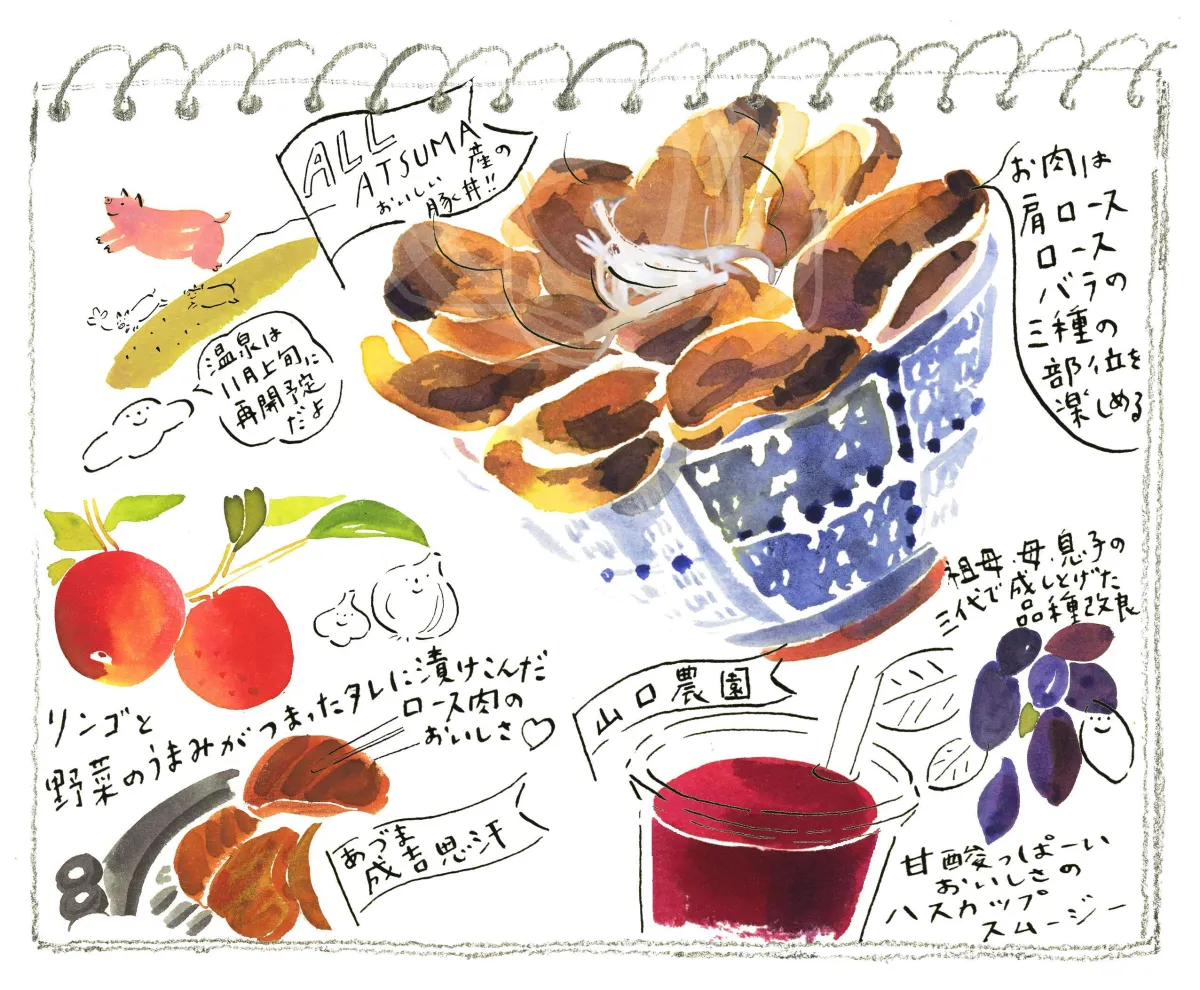 ALL
ATSUMA産の
おいしい
豚丼!!
お肉は
肩ロース
ロース
バラの
三種の
部位を
楽しめる
温泉は
11月上旬に
再開予定
だよ
リンゴと
野菜のうまみがつまったタレに漬けこんだ
ロース肉の
おいしさ♡
あづま
成吉思汗
祖母、母、息子の
三代で成しとげた
品種改良
山口農園
甘酸っぱーい
おいしさの
ハスカップ
スムージー